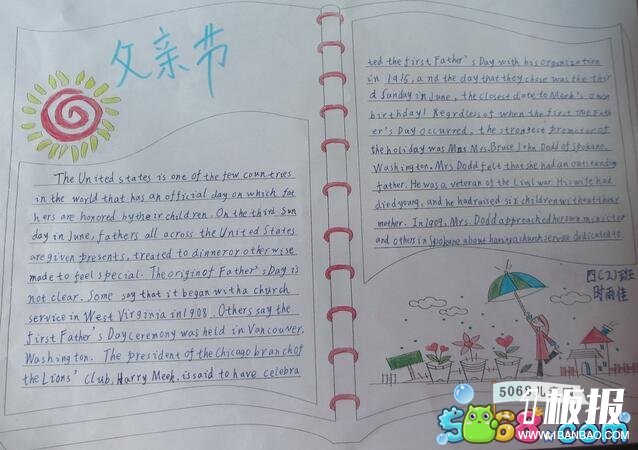 父亲节
The United states is one of the few countries
in the world that has an official day on which fat
hers are honored by their children. On the third Sun
day in June, fathers all across the United States
are given presents, treated to dinner or otherwise
made to feel special. The origin of Father's Day is
not clear. Some say that it began with a church
service in West Virginia in 1908. Others say the
first Father's Day ceremony was held in Vancouver,
Washington. The president of the Chicago branch of
the Lions' Club, Harry Meek, is said to have celebra
ted the first Father's Day with his organization
in 1915, and the day that they chose was the thir
d Sunday in June, the closest date to Meek's own
birthday! Regrdless of when the first Fath
er's Day occurred, the strongest promoter of
the holiday was Mrs. Bruce John Dodd of Spokane,
Washington. Mrs Dodd felt that she had an outstanding
father. He was a veteran of the Civil war. His wife had
died young, and he had raised six children without their
mother. In 1909, Mrs. Dodd approached her own minister
and others in Spokane about having a church service dedicated to
四(2)班
时雨佳
5068儿童网
5068.com
板报
WWW.1BANBAO.COM